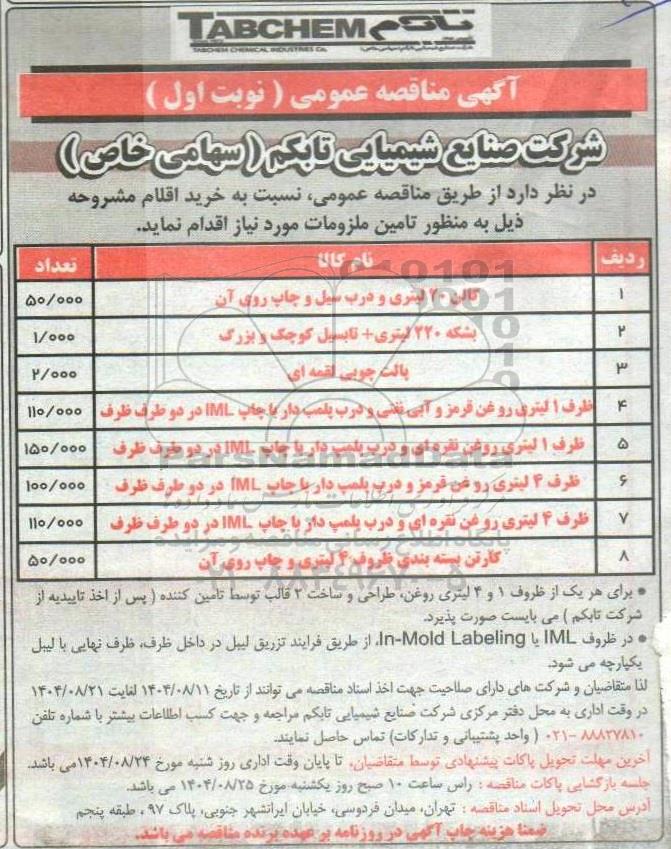 TABCHEM تابکم
TABCHEM CHEMICAL INDUSTRIES Co.
آگهی مناقصه عمومی ( نوبت اول )
شرکت صنایع شیمیایی تابکم ( سهامی خاص )
در نظر دارد از طریق مناقصه عمومی، نسبت به خرید اقلام مشروحه
ذیل به منظور تامین ملزومات مورد نیاز اقدام نماید.
ردیف نام کالا تعداد
۱ گالن ۲۰ لیتری و درب سیل و چاپ روی آن ۵۰/۰۰۰
۲ بشکه ۲۲۰ لیتری + تابسیل کوچک و بزرگ ۱/۰۰۰
۳ پالت چوبی لقمه ای ۲/۰۰۰
۴ ظرف ۱ لیتری روغن قرمز و آبی نفتی و درب پلمب دار با چاپ IML در دو طرف ظرف ۱۱۰/۰۰۰
۵ ظرف ۱ لیتری روغن نقره ای و درب پلمب دار با چاپ IML در دو طرف ظرف ۱۵۰/۰۰۰
۶ ظرف ۴ لیتری روغن قرمز و درب پلمب دار با چاپ IML در دو طرف ظرف ۱۰۰/۰۰۰
۷ ظرف ۴ لیتری روغن نقره ای و درب پلمب دار با چاپ IML در دو طرف ظرف ۱۱۰/۰۰۰
۸ کارتن بسته بندی ظروف ۴ لیتری و چاپ روی آن ۵۰/۰۰۰
ParsNamadData
پایگاه اطلاع رسانی مناقصه و مزایده
● برای هر یک از ظروف ۱ و ۴ لیتری روغن، طراحی و ساخت ۲ قالب توسط تامین کننده ( پس از اخذ تاییدیه از
شرکت تابکم ) می بایست صورت پذیرد.
● در ظروف IML یا In-Mold Labeling، از طریق فرایند تزریق لیبل در داخل ظرف، ظرف نهایی با لیبل
یکپارچه می شود.
لذا متقاضیان و شرکت های دارای صلاحیت جهت اخذ اسناد مناقصه می توانند از تاریخ ۱۴۰۴/۰۸/۱۱ لغایت ۱۴۰۴/۰۸/۲۱
در وقت اداری به محل دفتر مرکزی شرکت صنایع شیمیایی تابکم مراجعه و جهت کسب اطلاعات بیشتر با شماره تلفن
۸۸۸۲۷۸۱۰ -۰۲۱ ( واحد پشتیبانی و تدارکات) تماس حاصل نمایند.
آخرین مهلت تحویل پاکات پیشنهادی توسط متقاضیان، تا پایان وقت اداری روز شنبه مورخ ۱۴۰۴/۰۸/۲۴می باشد.
جلسه بازگشایی پاکات مناقصه : راس ساعت ۱۰ صبح روز یکشنبه مورخ ۱۴۰۴/۰۸/۲۵ می باشد.
آدرس محل تحویل اسناد مناقصه : تهران، میدان فردوسی، خیابان ایرانشهر جنوبی، پلاک ۹۷ ، طبقه پنجم
ضمنا هزینه چاپ آگهی در روزنامه بر عهده برنده مناقصه می باشد.